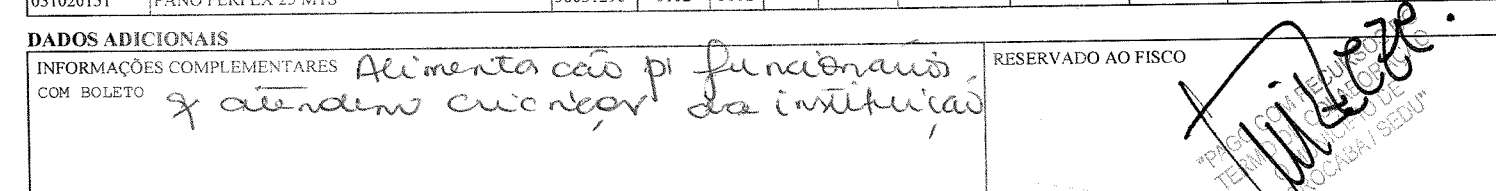 031020151 PANO PERFEX 25 MTS
DADOS ADICIONAIS
INFORMAÇÕES COMPLEMENTARES Alimentação p/ funcionários
COM BOLETO q atendem crianças da instituição
RESERVADO AO FISCO
"PAGO COM RECURSO
TERMO DE COLABORAÇÃO
MUNICÍPIO DE
SOROCABA / SEDU"